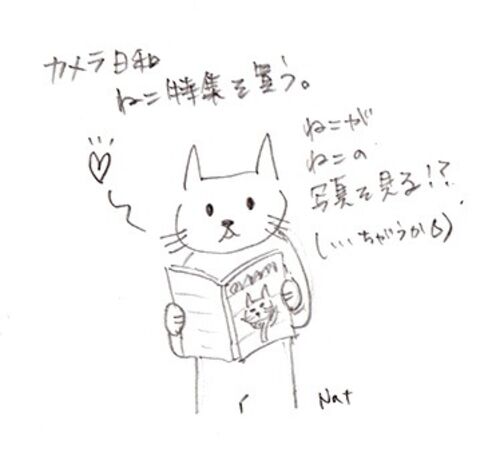 カメラ日和
ねこ特集を買う。
ねこが
ねこの
写真を見る!?
(...ちがうから)
Nat